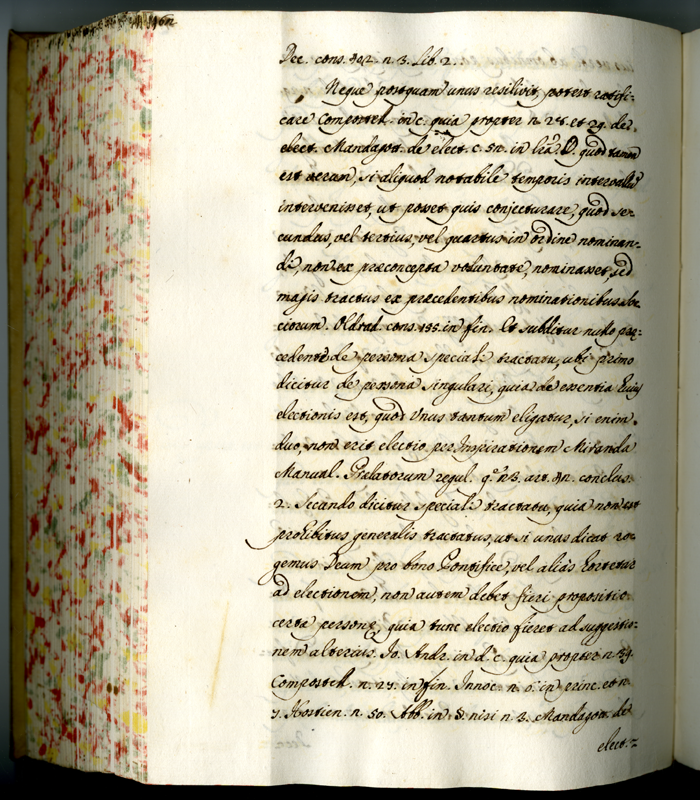 Dec. cons. 402. n. 3. lib. 2.
Neque postquam unus resilivit potest ratifi-
care Compostel. in c. quia propter n. 28. et 29. de
elect. Mandagot. de elect. c. 52. in quod tamen
est verum, si aliquod notabile temporis intervallu
intervenisset, ut posset quis conjecturare, quod se-
cundus, vel tertius, vel quartus in ordine nominan-
di, non ex præconcepta voluntate, nominasset, sed
magis tractus ex præcedentibus nominationibus so-
ciorum. Oldrad. cons. 155. in fin. Et subditur nullo præ-
cedente de persona speciali tractatu, ubi primo
dicitur de persona singulari, quia de essentia huius
electionis est, quod unus tantum eligatur, si enim
duo, non erit electio per Inspirationem Miranda
Manual. Prelatorum regul. q. n. 3. art. conclus.
2. Secundo dicitur speciali tractatu, quia non est
prohibitus generalis tractatus, ut si unus dicat ro-
gemus Deum pro bono Pontifice, vel aliàs hortetur
ad electionem, non autem debet fieri propositio
certæ personę, quia tunc electio fieret ad suggestio-
nem alterius. Io. Andr. in d. c. quia propter n. 39.
Compostell. n. 27. in fin. Innoc. n. 6. in princ. et n.
7. Hostien. n. 50. Abb. in §. nisi n. 3. Mandagot. de
elect.